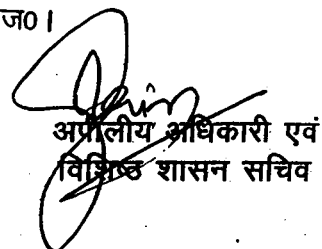 ज0।
अपीलीय अधिकारी एवं
विशिष्ठ शासन सचिव